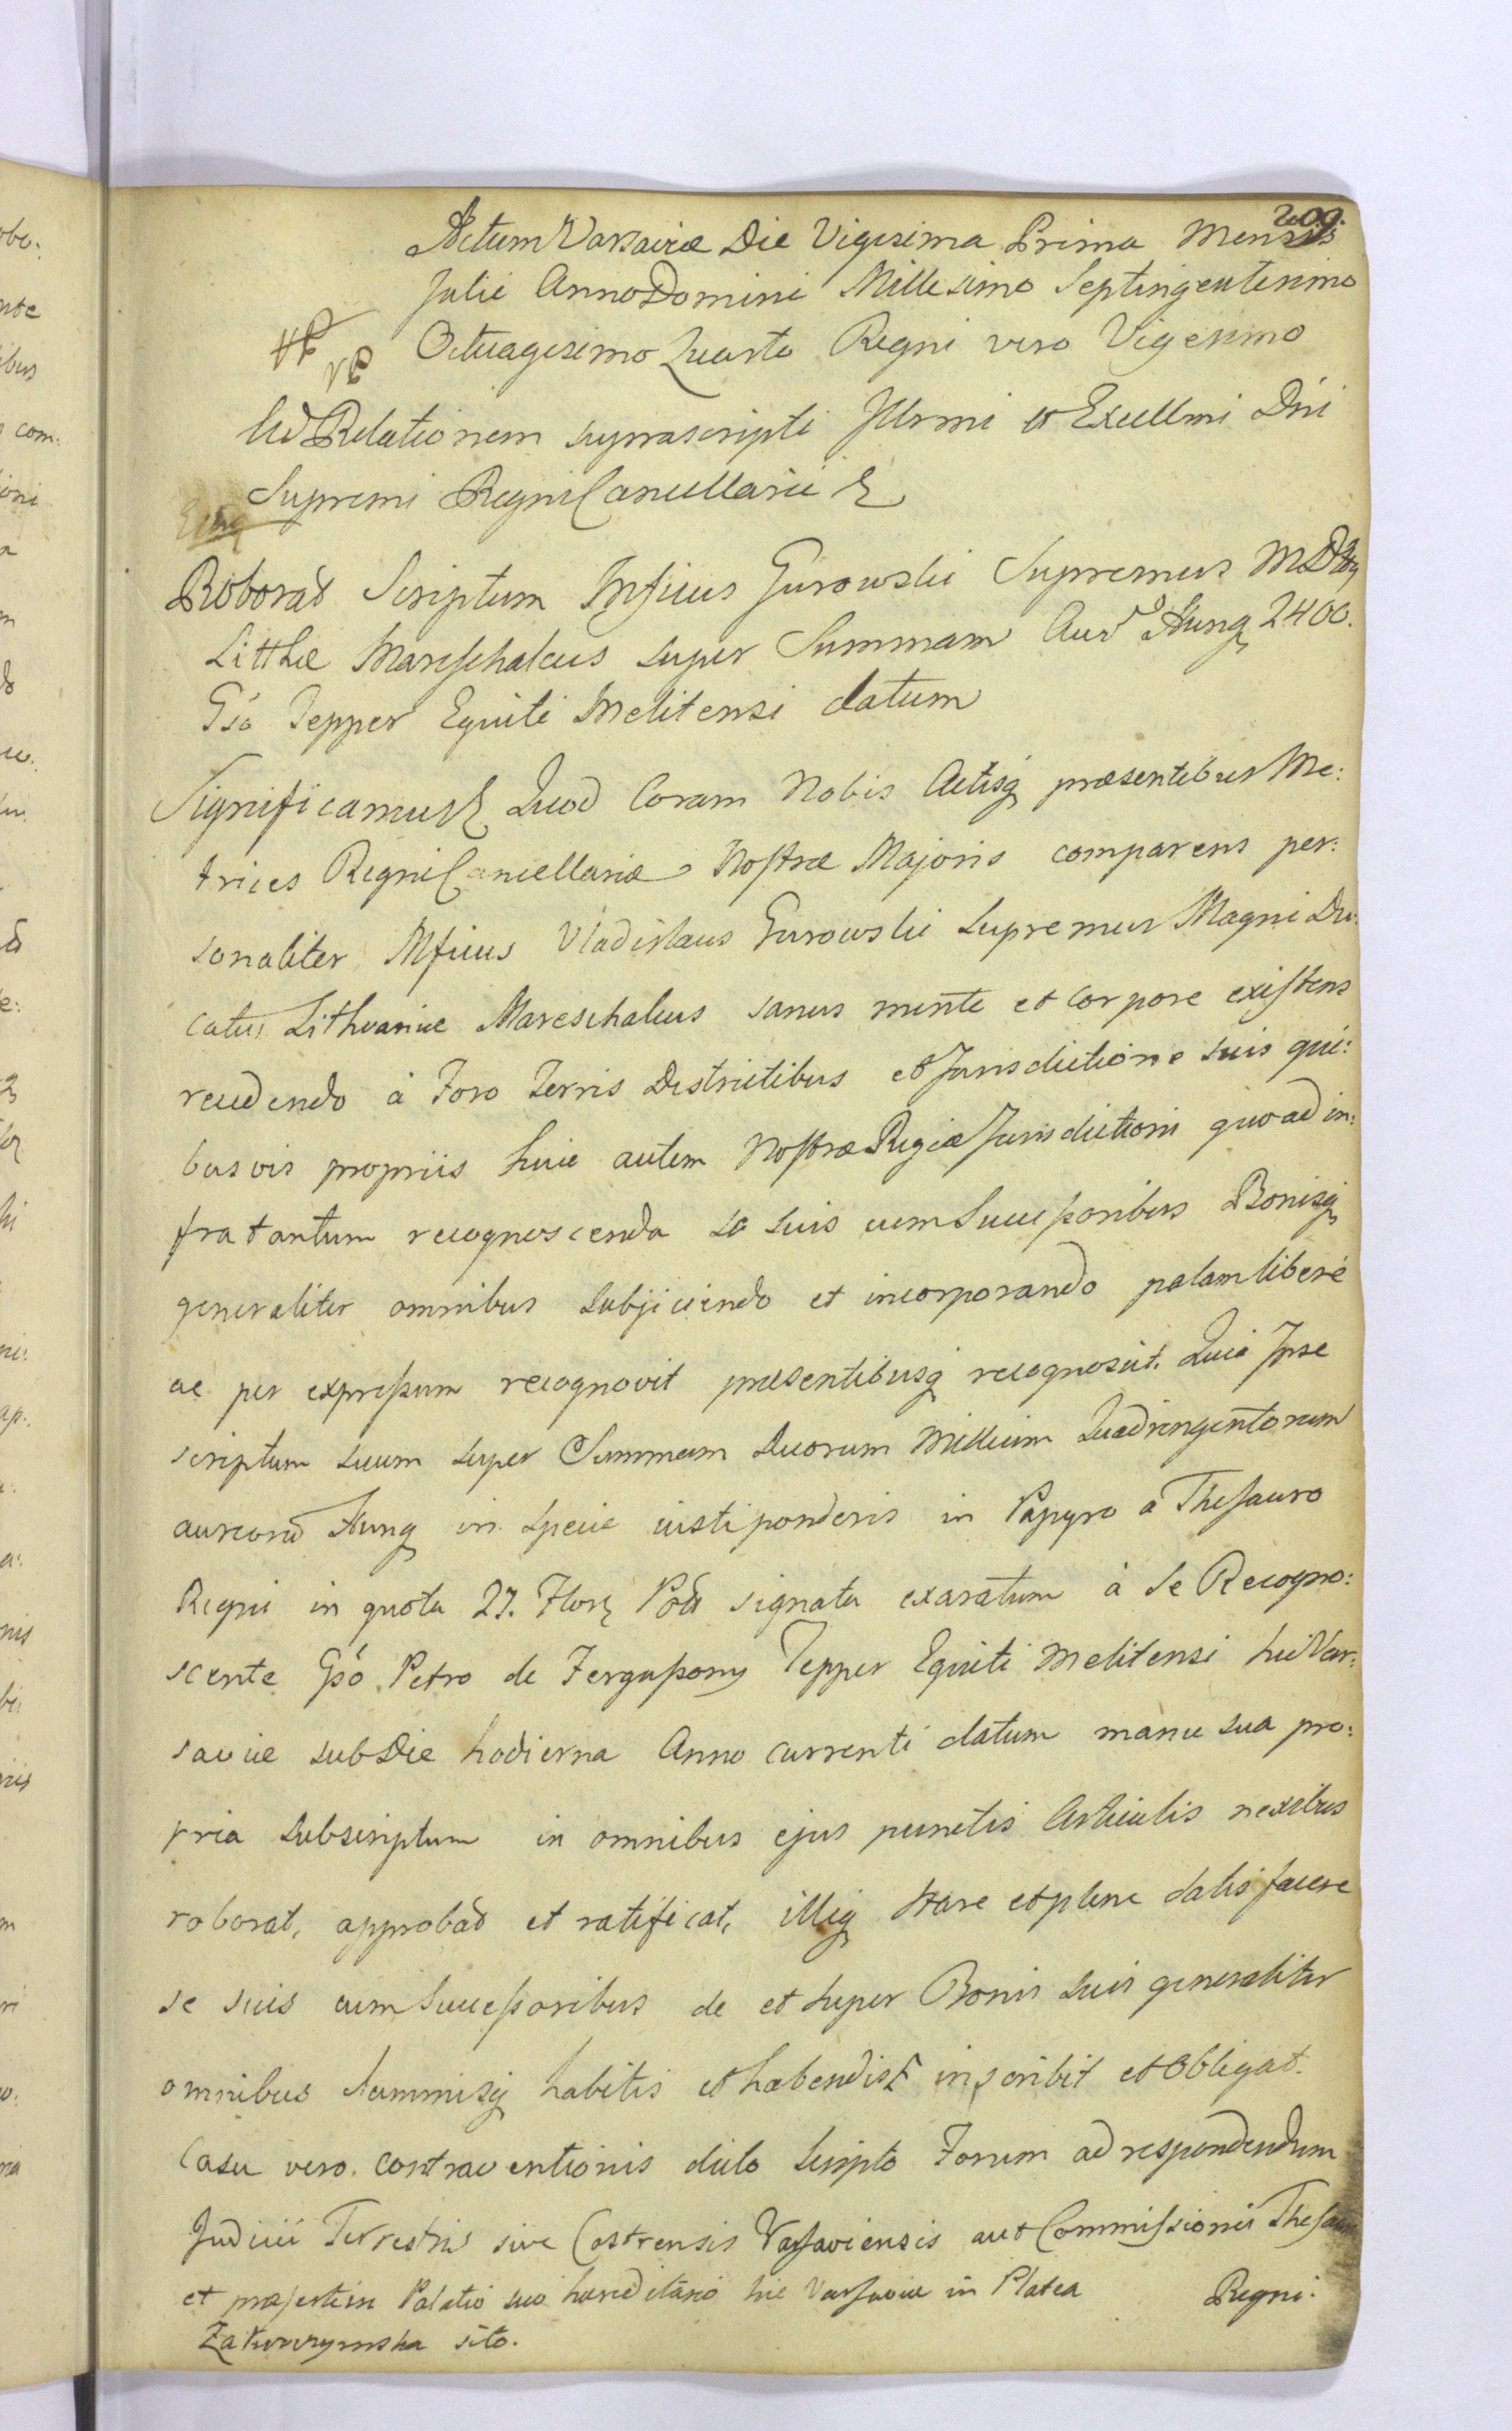 209.
Actum Varsaviæ Die Vigesima Prima Mensis
Julii Anno Domini Millesimo Septingentesimo
Octuagesimo Quarto Regni vero Vigesimo
Ad Relationem suprascripti Illrmi et Excellmi Dni
Supremi Regni Cancellarii
Roborat Scriptum Mficus Gurowski Supremus M D
Litthæ Mareschalcus super Summam Aur Hung 2400.
Gso Tepper Equiti Melitensi datum
Significamus Quod Coram Nobis Actisq præsentibus Me:
trices Regni Cancellariæ Nostræ Majoris comparens per:
sonaliter Mficus Vladislaus Gurowski Supremus Magni Du:
catus Lithvaniæ Mareschalcus sanus mente et corpore existens
recedendo à Foro Terris Districtibus et Jurisdictione suis qui:
busvis propriis huic autem Nostræ Regiæ Jurisdictioni quoad in:
fra tantum recognoscenda se suis cum Successoribus Bonisq
generaliter omnibus subjiciendo et incorporando palam liberé
ac per expressum recognovit præsentibusq recognoscit. Quia Ipse
scriptum suum super Summam Duorum Millium Quadringentorum
aureord Hung in specie iusti ponderis in Papyro a Thesauro
Regni in quota 27. Flor Pol signata exaratum à se Recogno:
scente Gso Petro de Fergussony Tepper Equiti Melitensi hic Var:
saviæ sub Die hodierna Anno currenti datum manu sua pro:
pria subscriptum in omnibus ejus punctis Articulis nexibus
roborat, approbat et ratificat, illiq stare et plene satisfacere
se suis cum Successoribus de et super Bonis suis generaliter
omnibus Summisq habitis et habendis inscribit et obligat.
Casu vero contraventionis dicto Scripto Forum ad respondendum
Judicii Terrestris sive Castrensis Varsaviensis aut Commissionis Thesauri
et præsertim Palatio suo hæreditario hic Varsaviæ in Platea
Regni.
Zakroczymska sito.